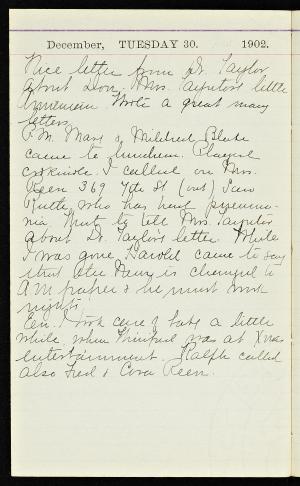 December, TUESDAY 30. 1902.
Nice letter from Dr. Taylor
about Don. Mrs. Taynton's little
Wrote a great many
letters.
P.M. Mary & Mildred Blake
came to luncheon. Played
I called on Mrs.
Keen 369 (out) Saw
Ruth, who has had pneumo-
nia. Went to tell Mrs. Taynton
about Dr. Taylor's letter. While
I was gone Harold came to say
that the is changed to
A M paper & he must work
nights.
Eve. I took care of baby a little
while, when Winifred was at Xmas
entertainment. Ralph called
also Fred & Cora Keen.